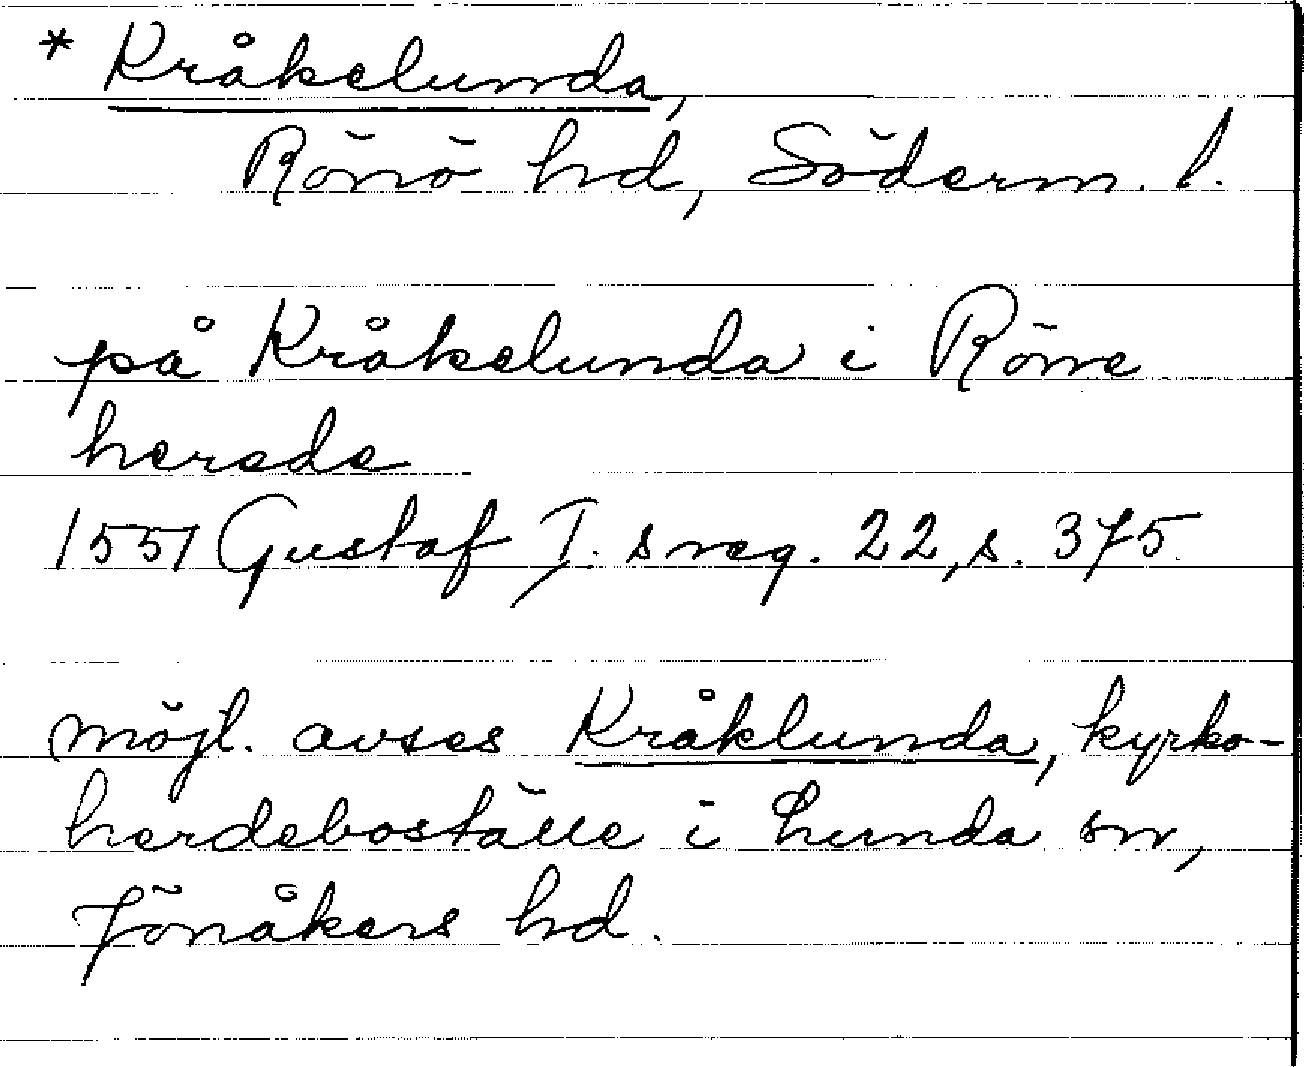 * Kråkelunda,
Rönö hd, Söderm. l.
på Kråkelunda i Röne
herade
1551 Gustaf I. s reg. 22, s. 375.
möjl. avses Kråklunda, kyrko-
herdeboställe i Lunda sn,
Jönåkers hd.